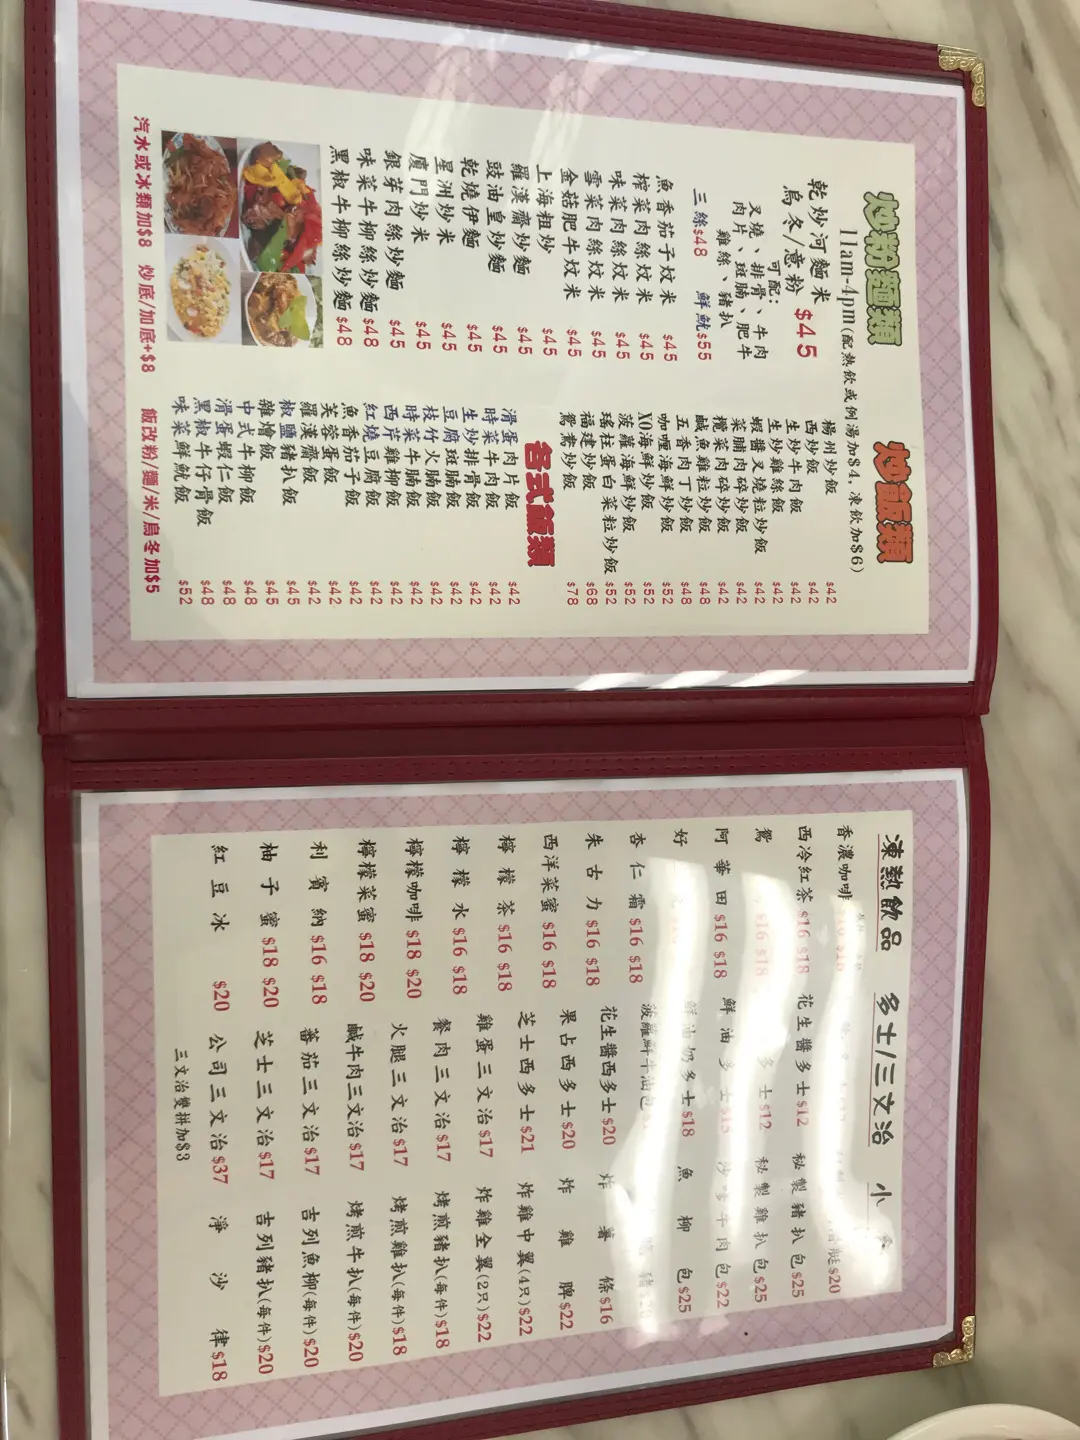 炒粉麵類
11am-4pm(配熱飲或例湯加$4,凍飲加$6)
乾炒河麵米
烏冬/意粉 $45
可配:
叉燒、排骨、牛肉
肉片、斑腩、肥牛
雞絲、豬扒
三絲$48 鮮魷$55
魚香茄子炆米 $45
榨菜肉絲炆米 $45
味菜肉絲炆米 $45
雪菜肉絲炆米 $45
金菇肥牛炆米 $45
上海粗炒 $45
羅漢齋炒麵 $45
豉油皇炒麵 $45
乾燒伊麵 $45
星洲炒米 $45
廈門炒米 $45
銀芽肉絲炒麵 $45
味菜牛柳絲炒麵 $48
黑椒牛柳絲炒麵 $48
汽水或冰類加$8 炒底/加底+$8
炒飯類
楊州炒飯 $42
西炒飯 $42
生炒牛肉飯 $42
生炒雞絲飯 $42
蝦醬叉燒粒炒飯 $42
菜脯肉碎炒飯 $42
欖菜肉碎炒飯 $42
鹹魚雞粒炒飯 $48
五香肉丁炒飯 $48
咖喱海鮮炒飯 $52
XO海鮮炒飯 $52
菠蘿海鮮炒飯 $52
瑤柱蛋白菜粒炒飯 $52
福建炒飯 $68
鴛鴦炒飯 $78
各式飯類
滑蛋肉片飯 $42
時菜牛肉飯 $42
生炒排骨飯 $42
豆腐斑腩飯 $42
枝竹火腩飯 $42
時菜牛腩飯 $42
西芹雞柳飯 $42
紅燒豆腐飯 $42
魚香茄子飯 $42
芙蓉蛋飯 $42
羅漢齋飯 $42
椒鹽豬扒飯 $45
雜燴飯 $45
中式牛柳飯 $48
滑蛋蝦仁飯 $48
黑椒牛仔骨飯 $48
味菜鮮魷飯 $52
飯改粉/麵/米/烏冬加$5
凍熱飲品
香濃咖啡
西冷紅茶 $16 $18
鴛 $16 $18
阿華田 $16 $18
好
杏仁霜 $16 $18
朱古力 $16 $18
西洋菜蜜 $16 $18
檸檬茶 $16 $18
檸檬水 $16 $18
檸檬咖啡 $18 $20
檸檬菜蜜 $18 $20
利賓納 $16 $18
柚子蜜 $18 $20
紅豆冰 $20
多士/三文治
花生醬多士$12
多士$12
鮮油多士$15
鮮油奶多士$18
菠蘿鮮牛油包
花生醬西多士$20
果占西多士$20
芝士西多士$21
雞蛋三文治$17
餐肉三文治$17
火腿三文治$17
鹹牛肉三文治$17
蕃茄三文治$17
芝士三文治$17
公司三文治$37
三文治雙拼加$3
小
$20
秘製豬扒包$25
秘製雞扒包$25
沙嗲牛肉包$22
魚柳包$25
炸薯條$16
炸雞髀$22
炸雞中翼(4只)$22
炸雞全翼(2只)$22
烤煎豬扒(每件)$18
烤煎雞扒(每件)$18
烤煎牛扒(每件)$20
吉列魚柳(每件)$20
吉列豬扒(每件)$20
淨沙律$18